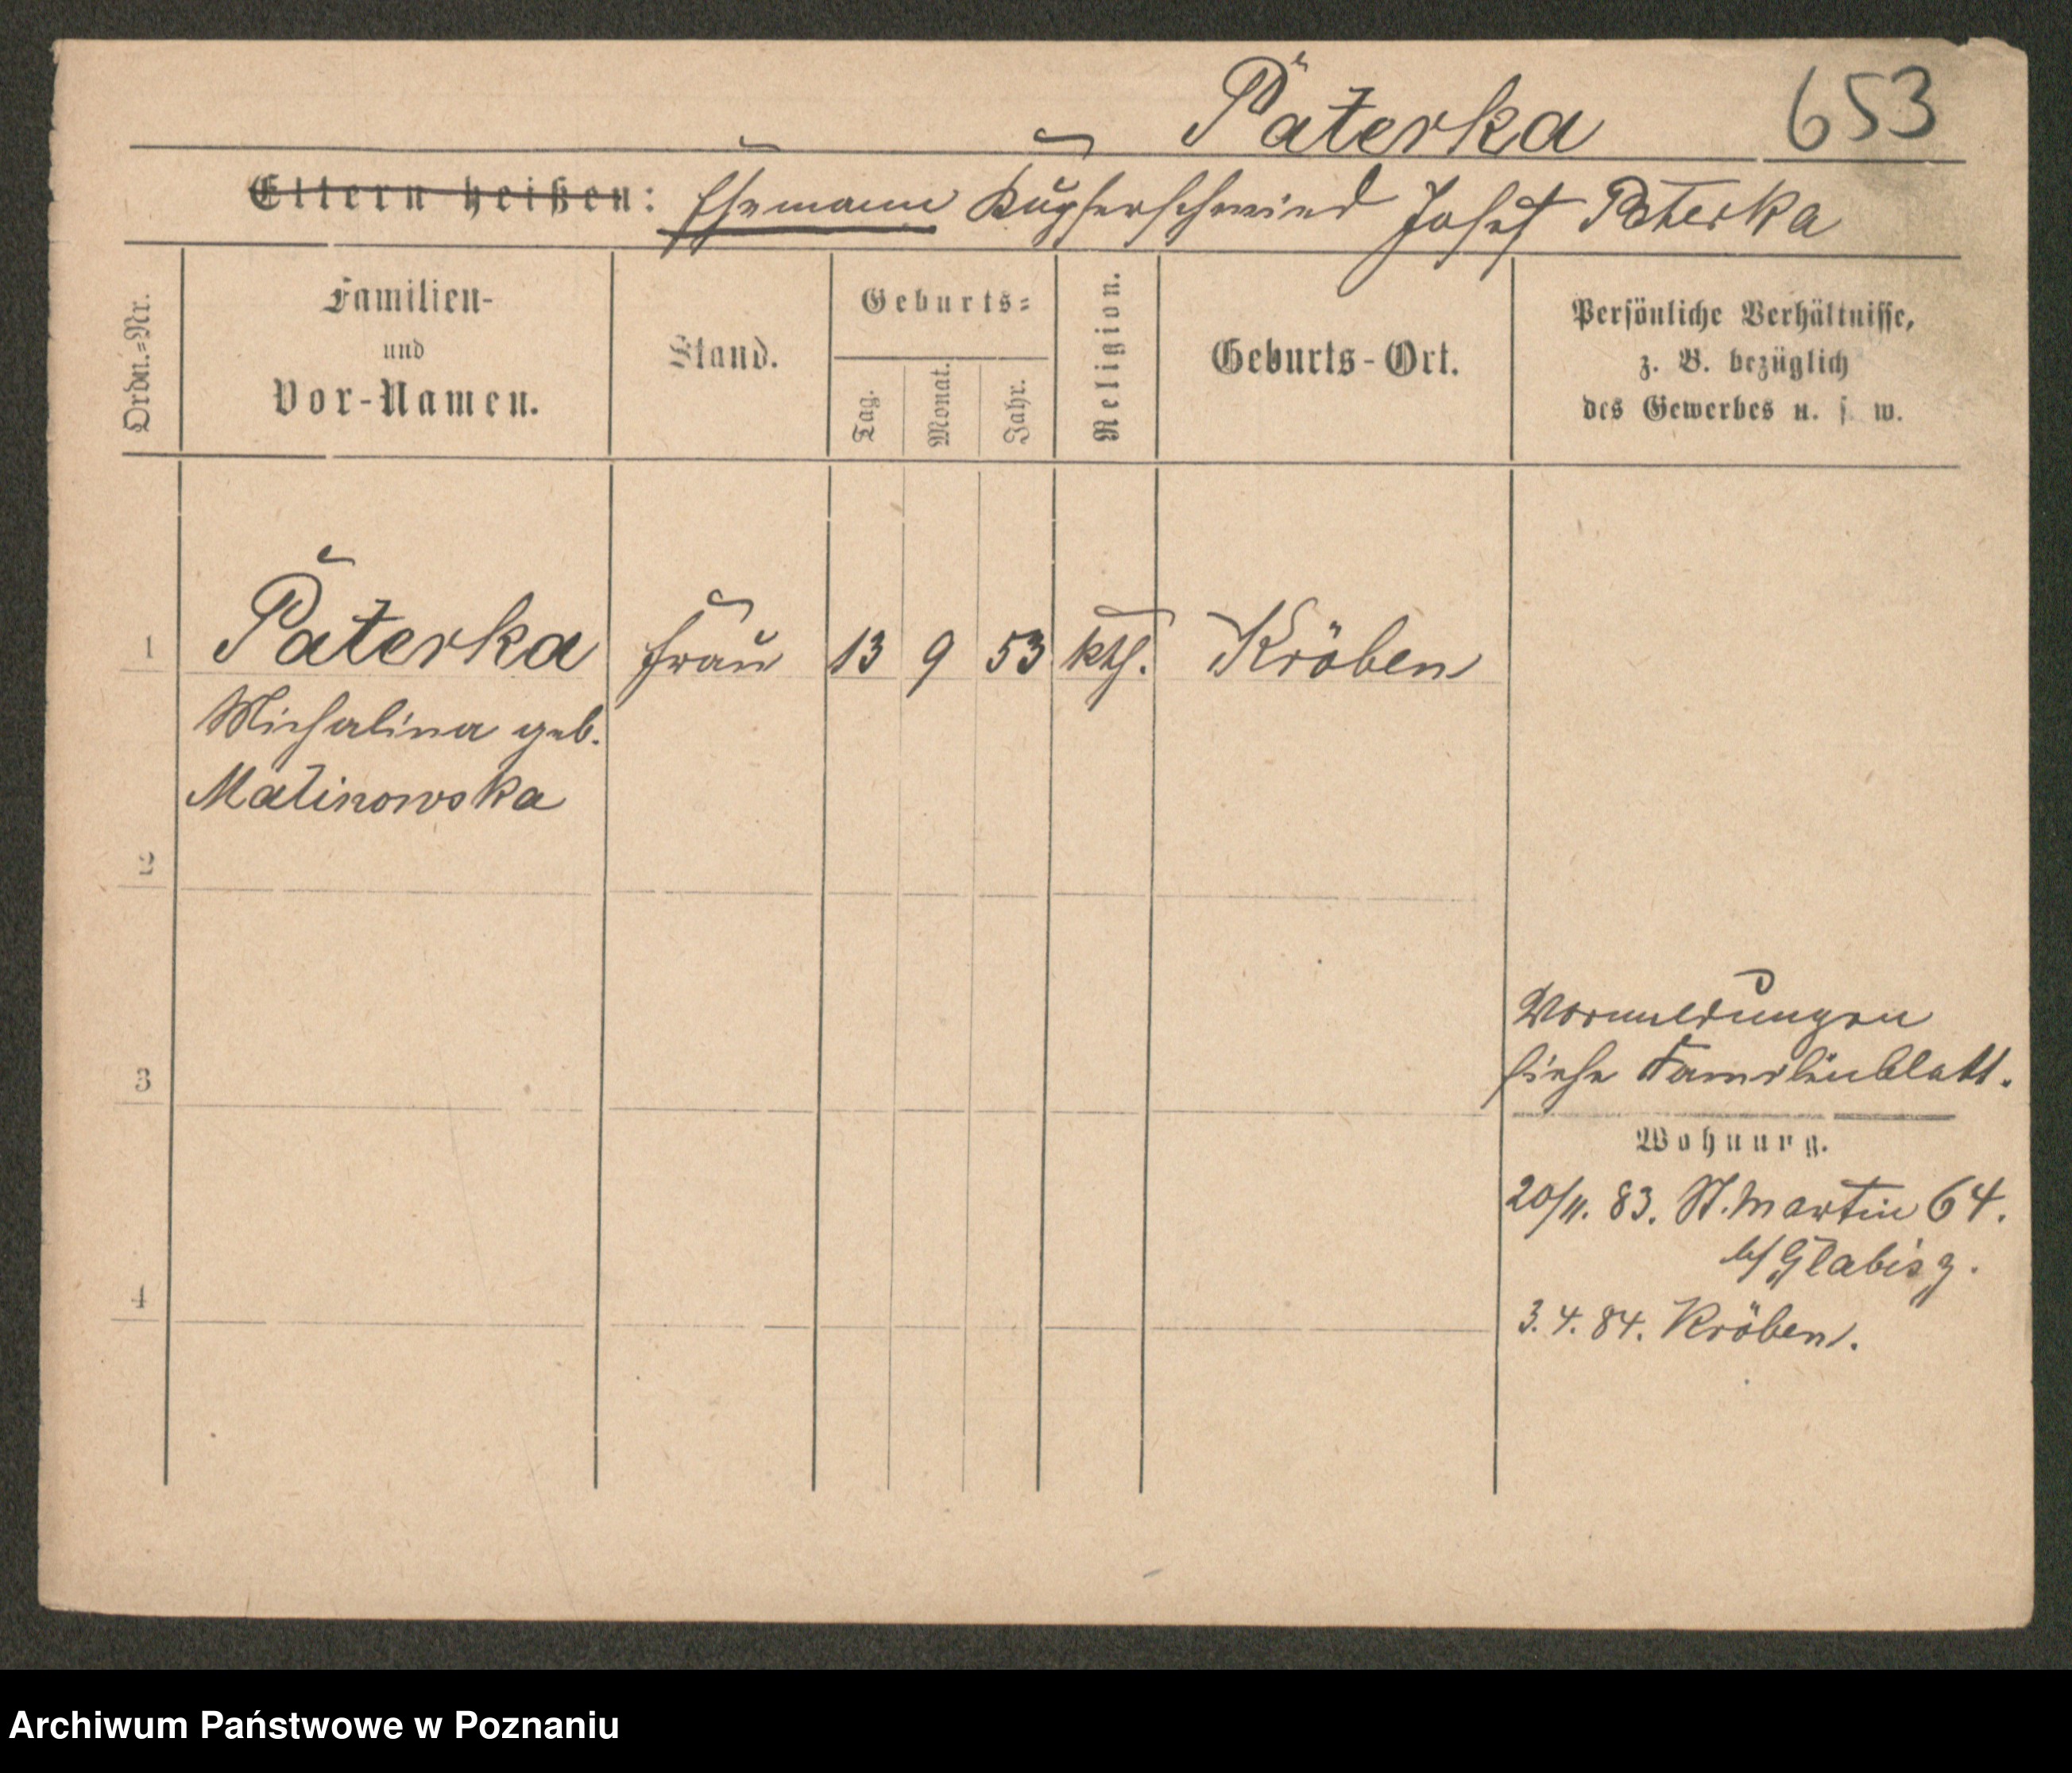 Paterka 653
Eltern heißen: Ehemann Kupferschmied Josef Paterka
Ordn.=Nr.
Familien-
und
Vor-Namen.
Stand.
Geburts=
Tag.
Monat.
Jahr.
Religion.
Geburts-Ort.
Persönliche Verhältnisse,
z. B. bezüglich
des Gewerbes u. s. w.
1 Paterka Frau 13 9 53 kth. Kröben
Michalina geb.
Malinowska
2
3
Vormeldungen
siehe Familienblatt.
Wohnung.
20/11. 83. St. Martin 64.
b/ Glabisz.
4
3. 4. 84. Kröben.
Archiwum Państwowe w Poznaniu